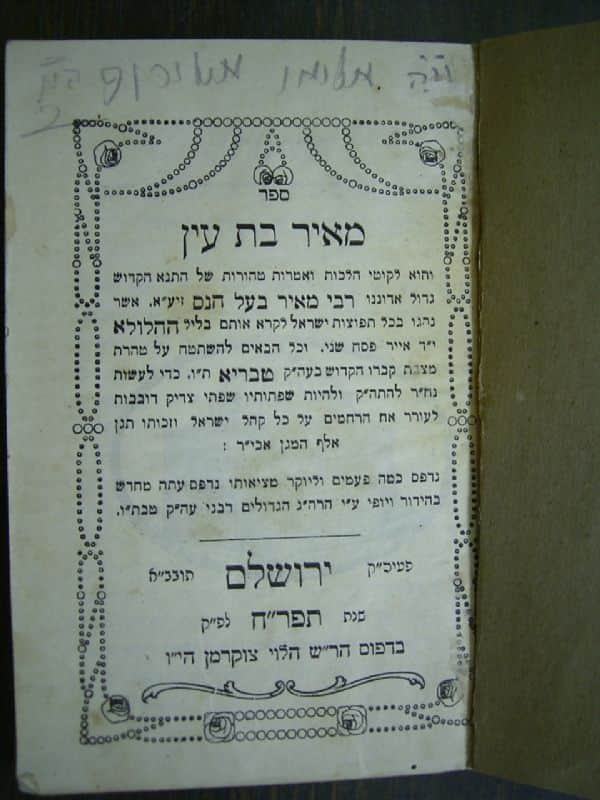 ספר
מאיר בת עין
והוא לקוטי הלכות ואמרות טהורות של התנא הקדוש
גדול אדוננו רבי מאיר בעל הנס זיע״א. אשר
נהגו בכל תפוצות ישראל לקרא אותם בליל ההלולא
י״ד אייר פסח שני. וכל הבאים להשתטח על טהרת
מצבת קברו הקדוש בעה״ק טבריא ת״ו. כדי לעשות
נח״ר להתה״ק ולהיות שפתותיו שפתי צדיק דובבות
לעורר את הרחמים על כל קהל ישראל וזכותו תגן
אלף המגן אכי״ר :
נדפס כמה פעמים וליוקר מציאותו נדפס עתה מחדש
בהידור ויופי ע״י הרה״ג הגדולים רבני עה״ק טבת״ו.
פעיה״ק ירושלם תובב״א
שנת תפר״ח לפ״ק
בדפוס הר״ש הלוי צוקרמן הי״ו